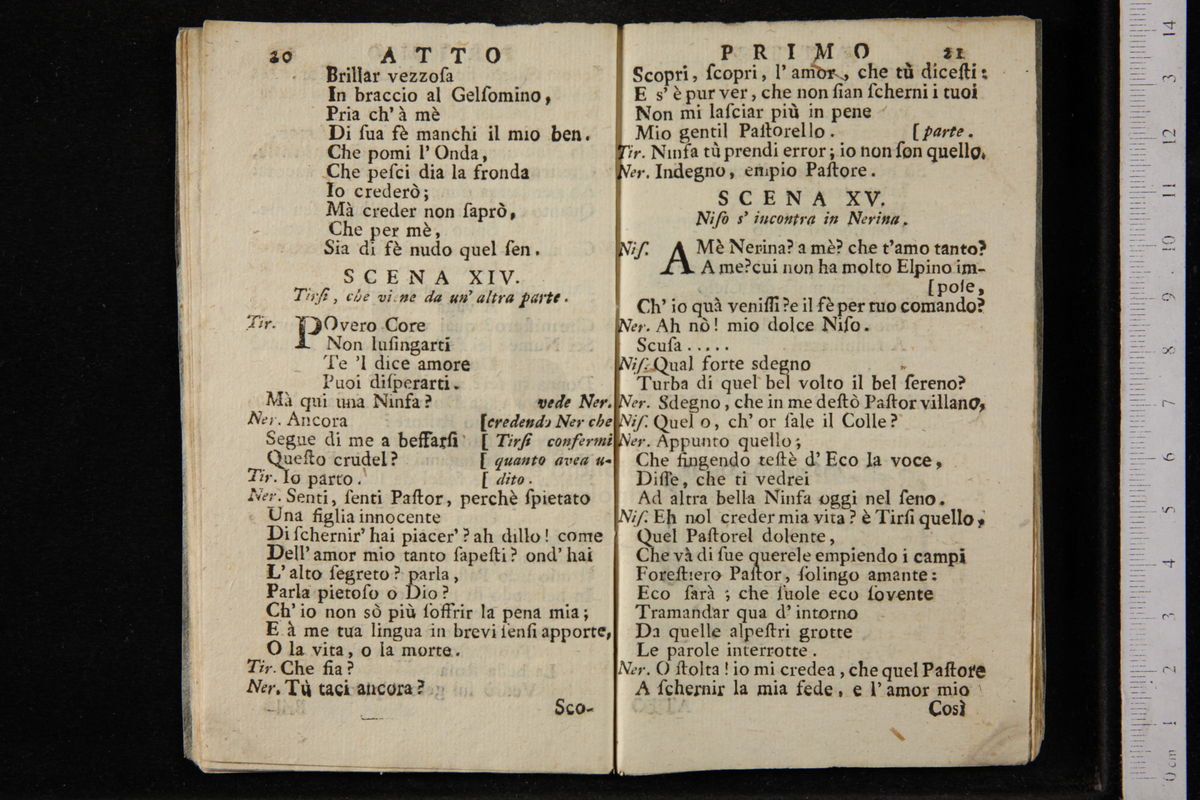 20 ATTO
Brillar vezzoſa
In braccio al Gelſomino,
Pria ch' à mè
Di ſua fè manchi il mio ben.
Che pomi l' Onda,
Che peſci dia la fronda
Io crederò;
Mà creder non ſaprò,
Che per mè,
Sia di fè nudo quel ſen.
SCENA XIV.
Tirſi, che viene da un' altra parte.
Tir. POvero Core
Non luſingarti
Te 'l dice amore
Puoi diſperarti.
Mà qui una Ninfa? vede Ner.
Ner. Ancora [credendo Ner che
Segue di me a beffarſi [ Tirſi confermi
Queſto crudel? [ quanto avea u-
Tir. Io parto. [ dito.
Ner. Senti, ſenti Paſtor, perchè ſpietato
Una figlia innocente
Di ſchernir' hai piacer'? ah dillo! come
Dell' amor mio tanto ſapeſti? ond' hai
L' alto ſegreto? parla,
Parla pietoſo o Dio?
Ch' io non sò più ſoffrir la pena mia;
E à me tua lingua in brevi ſenſi apporte,
O la vita, o la morte.
Tir. Che ſia?
Ner. Tù taci ancora?
Sco-
PRIMO 21
Scopri, ſcopri, l' amor, che tù diceſti:
E s' è pur ver, che non ſian ſcherni i tuoi
Non mi laſciar più in pene
Mio gentil Paſtorello. [parte.
Tir. Ninfa tù prendi error; io non ſon quello.
Ner. Indegno, empio Paſtore.
SCENA XV.
Niſo s' incontra in Nerina.
Niſ. A Mè Nerina? a mè? che t'amo tanto?
A me? cui non ha molto Elpino im-
[poſe,
Ch' io quà veniſſi? e il fè per tuo comando?
Ner. Ah nò! mio dolce Niſo.
Scuſa.....
Niſ. Qual forte sdegno
Turba di quel bel volto il bel ſereno?
Ner. Sdegno, che in me deſtò Paſtor villano,
Niſ. Quel o, ch' or ſale il Colle?
Ner. Appunto quello;
Che fingendo teſtè d' Eco la voce,
Diſſe, che ti vedrei
Ad altra bella Ninfa oggi nel ſeno.
Niſ. Eh nol creder mia vita? è Tirſi quello,
Quel Paſtorel dolente,
Che và di ſue querele empiendo i campi
Foreſtiero Paſtor, ſolingo amante:
Eco ſarà; che ſuole eco ſovente
Tramandar qua d' intorno
Da quelle alpeſtri grotte
Le parole interrotte.
Ner. O ſtolta! io mi credea, che quel Paſtore
A ſchernir la mia fede, e l' amor mio
Così